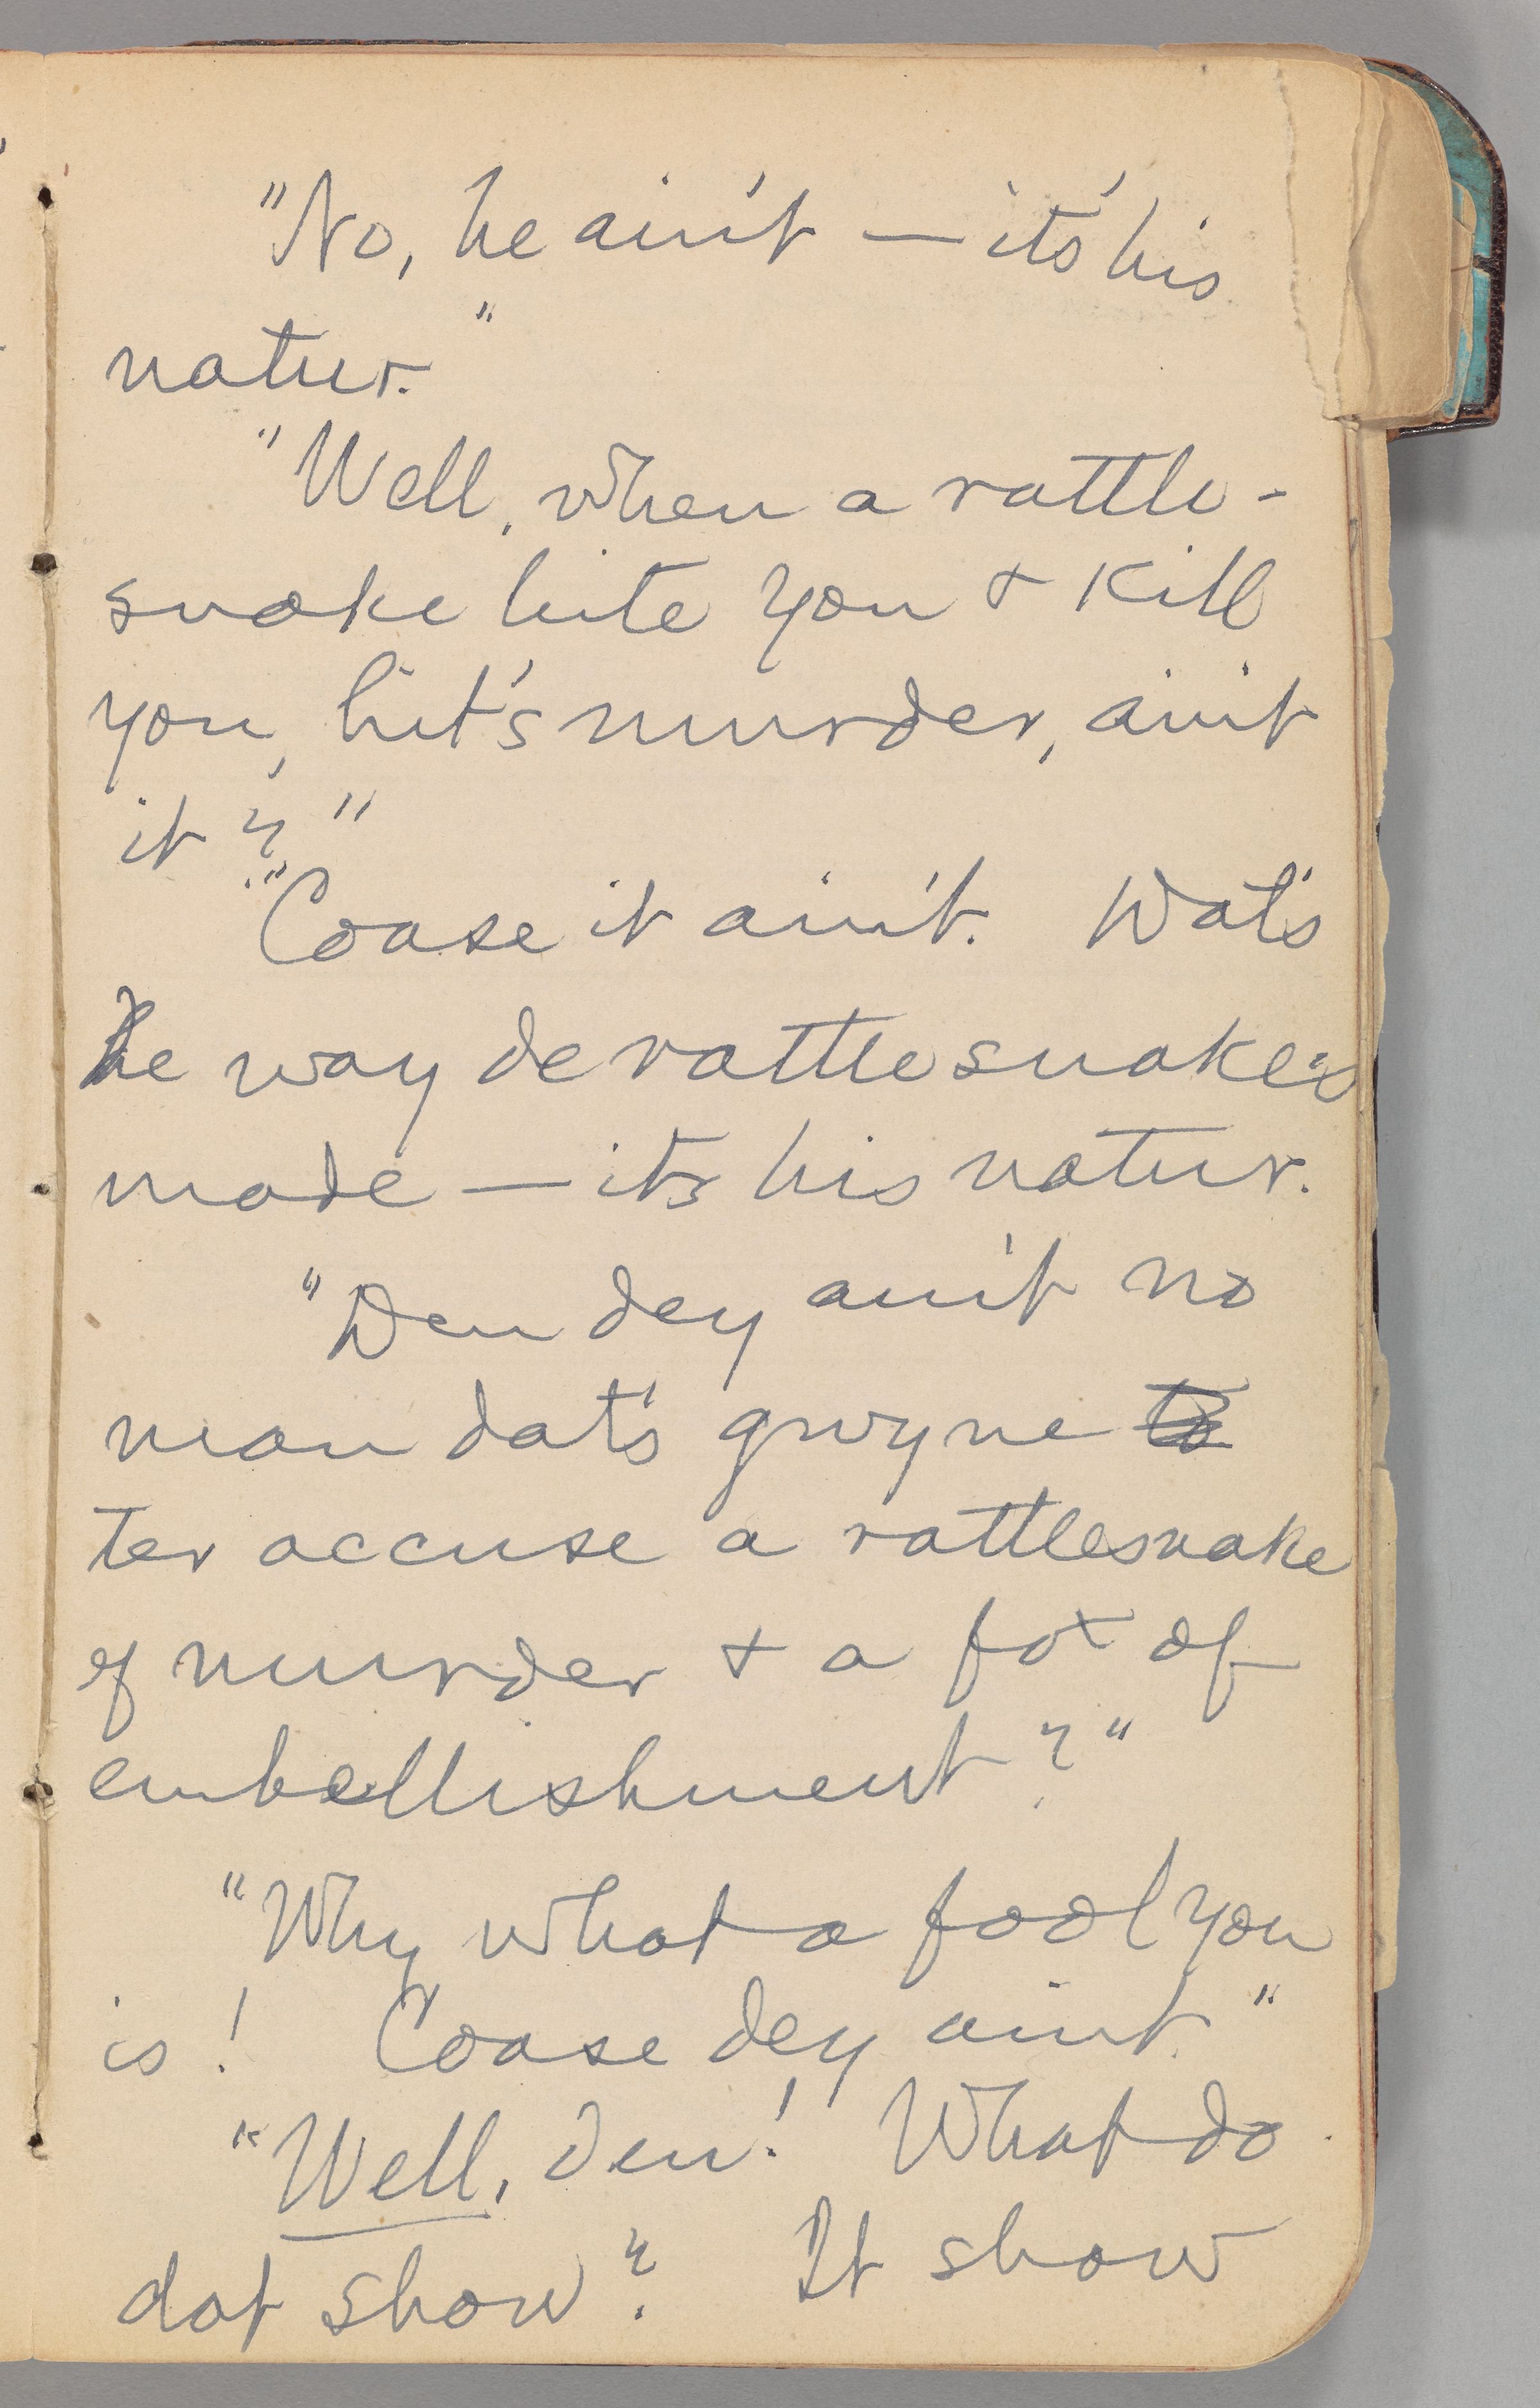 "No, he ain't — it's his
natur."
"Well, when a rattle-
snake bite you & kill
you, hit's murder, ain't
it?"
"Coase it ain't. Wat's
he way de rattlesnake's
made — its his natur.
"Den dey ain't no
man dat's gwyne to
ter accuse a rattlesnake
of murder & a fox of
embellishment?"
"Why what a fool you
is! Coase dey ain't."
"Well, den! What do
dat show? It show